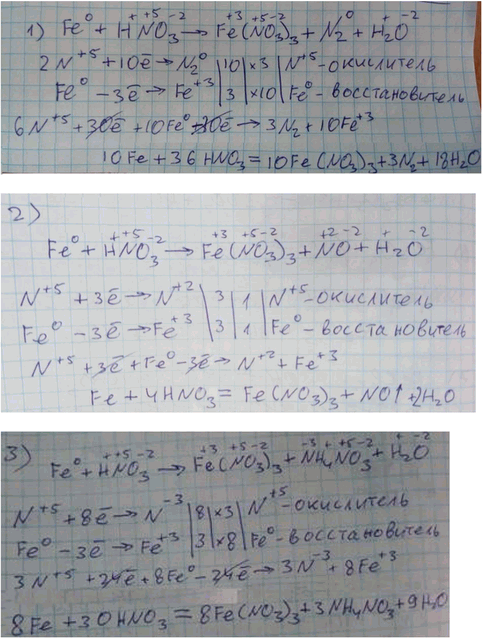 1) Fe⁰ + H⁺N⁺⁵O₃⁻² → Fe⁺³(N⁺⁵O₃⁻²)₃ + N₂⁰ + H₂⁺O⁻²
2N⁺⁵ + 10ē → N₂⁰ | 10 | ×3 | N⁺⁵ - окислитель
Fe⁰ - 3ē → Fe⁺³ | 3 | ×10 | Fe⁰ - восстановитель
6N⁺⁵ + 30ē + 10Fe⁰ - 30ē → 3N₂ + 10Fe⁺³
10Fe + 36HNO₃ = 10Fe(NO₃)₃ + 3N₂ + 18H₂O
2)
Fe⁰ + H⁺N⁺⁵O₃⁻² → Fe⁺³(N⁺⁵O₃⁻²)₃ + N⁺²O⁻² + H₂⁺O⁻²
N⁺⁵ + 3ē → N⁺² | 3 | 1 | N⁺⁵ - окислитель
Fe⁰ - 3ē → Fe⁺³ | 3 | 1 | Fe⁰ - восстановитель
N⁺⁵ + 3ē + Fe⁰ - 3ē → N⁺² + Fe⁺³
Fe + 4HNO₃ = Fe(NO₃)₃ + NO↑ + 2H₂O
3) Fe⁰ + H⁺N⁺⁵O₃⁻² → Fe⁺³(N⁺⁵O₃⁻²)₃ + N⁻³H₄⁺N⁺⁵O₃⁻² + H₂⁺O⁻²
N⁺⁵ + 8ē → N⁻³ | 8 | ×3 | N⁺⁵ - окислитель
Fe⁰ - 3ē → Fe⁺³ | 3 | ×8 | Fe⁰ - восстановитель
3N⁺⁵ + 24ē + 8Fe⁰ - 24ē → 3N⁻³ + 8Fe⁺³
8Fe + 30HNO₃ = 8Fe(NO₃)₃ + 3NH₄NO₃ + 9H₂O